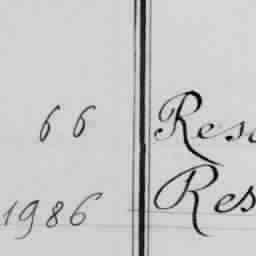 66 Res
1986 Res